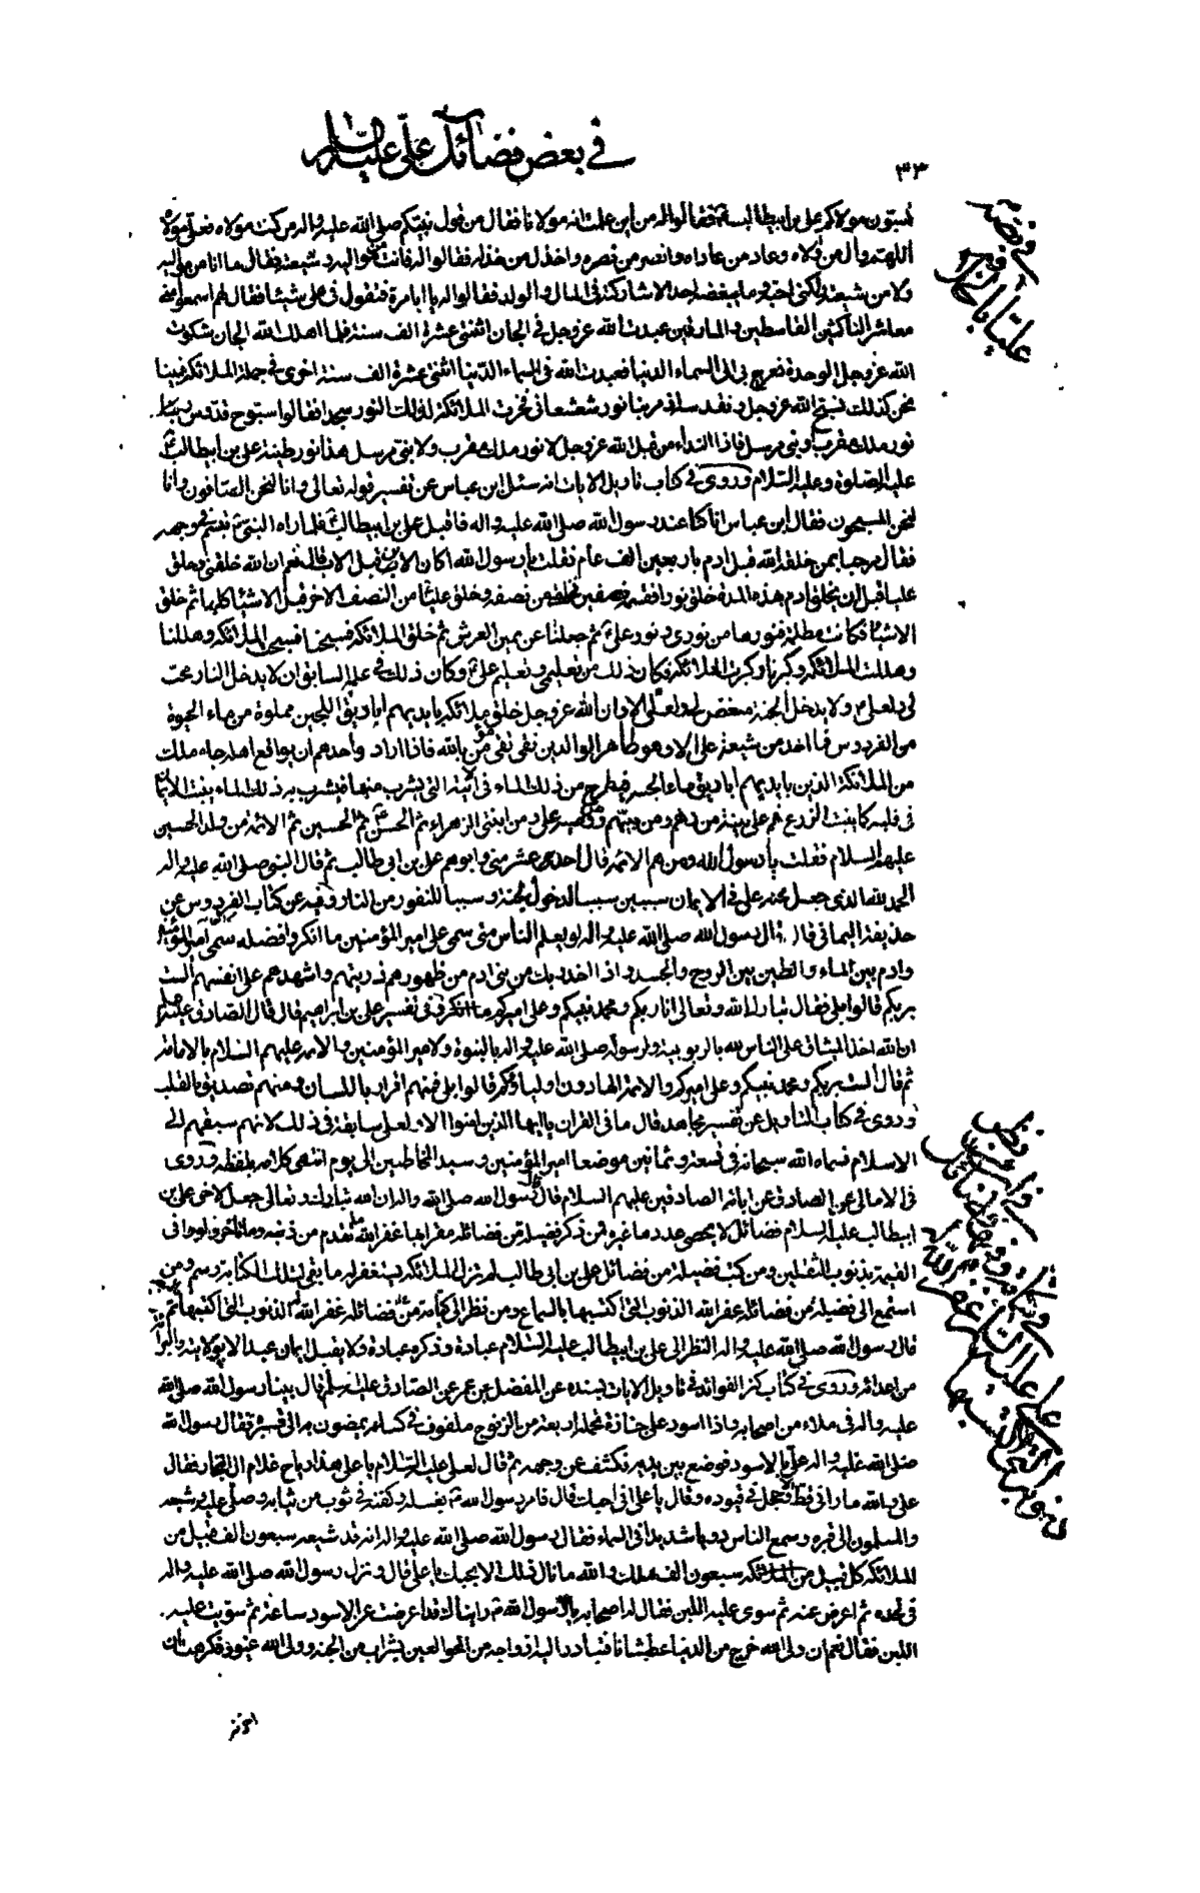 في بعض فضائل علي عليه السلام
٣٣
تسبون مولاكم علي بن ابيطالب فقالوا له من اين علمت انه مولانا فقال من قول نبيكم صلى الله عليه واله من كنت مولاه فعلي مولاه
اللهم وال من والاه وعاد من عاداه وانصر من نصره واخذل من خذله فقالوا له فانت من مواليه وشيعته فقال ما انا من مواليه
ولا من شيعته ولكني احبه وما يبغضه احد الا شاركته في المال والولد فقالوا له يا ابا مرة فتقول في علي شيئا فقال لهم اسمعوا مني
معاشر الناكثين والقاسطين والمارقين عبدت الله عز وجل في الجان اثنتي عشرة الف سنة فلما اهلك الله الجان شكوت
الله عز وجل الوحدة فعرج بي الى السماء الدنيا فعبدت الله في السماء الدنيا اثنتي عشرة الف سنة اخرى في جملة الملائكة فبينا
نحن كذلك نسبح الله عز وجل ونقدسه اذ مر بنا نور شعشعاني فخرت الملائكة لذلك النور سجدا فقالوا سبوح قدوس
نور ملك مقرب او نبي مرسل فاذا النداء من قبل الله عز وجل لا نور ملك مقرب ولا نبي مرسل هذا نور طينة علي بن ابيطالب
عليه الصلوة وعليه السلام وروى في كتاب تاويل الايات انه سئل ابن عباس عن تفسير قوله تعالى وانا لنحن الصافون وانا
لنحن المسبحون فقال ابن عباس انا كنا عند رسول الله صلى الله عليه واله فاقبل علي بن ابيطالب فلما راه النبي تبسم في وجهه
فقال مرحبا بمن خلقه الله قبل ادم باربعين الف عام فقلت يا رسول الله اكان الابن قبل الاب قال نعم ان الله خلقني وخلق
عليا قبل ان يخلق ادم بهذه المدة خلق نورا فقسمه نصفين فخلقني من نصفه وخلق عليا من النصف الاخر قبل الاشياء كلها ثم خلق
الاشياء فكانت مظلمة فنورها من نوري ونور علي ثم جعلنا عن يمين العرش ثم خلق الملائكة فسبحنا فسبحت الملائكة وهللنا
وهللت الملائكة وكبرنا وكبرت الملائكة فكان ذلك من تعليمي وتعليم علي وكان ذلك في علمه السابق ان لا يدخل النار محب
لي ولعلي ولا يدخل الجنة مبغض لي ولعلي الا وان الله عز وجل خلق ملائكة بايديهم اباريق اللجين مملوة من ماء الحيوة
من الفردوس فما احد من شيعة علي الا وهو طاهر الوالدين تقي نقي مؤمن بالله فاذا اراد واحدهم ان يواقع اهله جاء ملك
من الملائكة الذين بايديهم اباريق ماء الجنة فيطرح من ذلك الماء في انيته التي يشرب منها فيشرب به ذلك الماء ينبت الايمان
في قلبه كما ينبت الزرع فهم على بينة من ربهم ومن نبيهم ومن وصيه علي ومن ابنتي الزهراء ثم الحسن ثم الحسين ثم الائمة من ولد الحسين
عليهم السلام فقلت يا رسول الله ومن هم الائمة قال احد عشر مني وابوهم علي بن ابي طالب ثم قال النبي صلى الله عليه واله
الحمد لله الذي جعل محبة علي في الايمان سببين سببا لدخول الجنة وسببا للنفور من النار وفيه عن كتاب الفردوس عن
حذيفة اليماني قال قال رسول الله صلى الله عليه واله لو يعلم الناس متى سمي علي امير المؤمنين ما انكروا فضله سمي امير المؤمنين
وادم بين الماء والطين بين الروح والجسد واذ اخذ ربك من بني ادم من ظهورهم ذريتهم واشهدهم على انفسهم الست
بربكم قالوا بلى فقال تبارك الله وتعالى انا ربكم ومحمد نبيكم وعلي اميركم وفي تفسير علي بن ابراهيم قال قال الصادق عليه السلام
ان الله اخذ الميثاق على الناس لله بالربوبية ولرسوله صلى الله عليه واله بالنبوة ولامير المؤمنين والائمة عليهم السلام بالامامة
ثم قال الست بربكم ومحمد نبيكم وعلي اميركم والائمة الهادون اولياؤكم قالوا بلى فمنهم اقرار باللسان ومنهم تصديق بالقلب
وروى في كتاب التاويل عن تفسير مجاهد قال ما في القران يا ايها الذين امنوا الا ولعلي سابقة في ذلك لانهم سبقهم الى
الاسلام فسماه الله سبحانه في تسعة وثمانين موضعا امير المؤمنين وسيد المخاطبين الى يوم انتهى كلامه بلفظه وروى
في الامالي عن الصادق عن ابائه الصادقين عليهم السلام قال قال رسول الله صلى الله واله ان الله تبارك وتعالى جعل لاخي علي بن
ابيطالب عليه السلام فضائل لا يحصى عددها غيره فمن ذكر فضيلة من فضائله مقرا بها غفر الله له ما تقدم من ذنبه وما تاخر ولو وافى
القيمة بذنوب الثقلين ومن كتب فضيلة من فضائل علي بن ابي طالب لم تزل الملائكة يستغفر له ما بقي لتلك الكتابة رسم ومن
استمع الى فضيلة من فضائله غفر الله الذنوب التي اكتسبها بالسماع ومن نظر الى كتابة من فضائله غفر الله له الذنوب التي اكتسبها ثم
قال رسول الله صلى الله عليه واله النظر الى علي بن ابيطالب عليه السلام عبادة وذكره عبادة ولا يقبل ايمان عبد الا بولايته والبرائة
من اعدائه وروى في كتاب كنز الفوائد في تاويل الايات بسنده عن المفضل بن عمر عن الصادق عليه السلام قال بينا رسول الله صلى الله
عليه واله في ملاء من اصحابه واذا اسود على جنازة تحمله اربعة من الزنوج ملفوف في كساء يمضون به الى قبره فقال رسول الله
صلى الله عليه واله علي بالاسود فوضع بين يديه فكشف عن وجهه ثم قال لعلي عليه السلام يا علي هذا رياح غلام ال النجار فقال
علي والله ما راني قط الا وحجل في قيوده وقال يا علي اني احبك قال فامر رسول الله بغسله وكفنه في ثوب من ثيابه وصلى عليه وشيعه
والمسلمون الى قبره وسمع الناس دويا شديدا في السماء فقال رسول الله صلى الله عليه واله انه قد شيعه سبعون الف قبيل من
الملائكة كل قبيل من الملائكة سبعون الف ملك والله ما نال ذلك الا بحبك يا علي قال ونزل رسول الله صلى الله عليه واله
في لحده ثم اعرض عنه ثم سوى عليه اللبن فقال له اصحابه يا رسول الله رايناك قد اعرضت عن الاسود ساعة ثم سويت عليه
اللبن فقال نعم ان ولي الله خرج من الدنيا عطشانا فتبادر اليه ازواجه من الحور العين بشراب من الجنة وولي الله غيور فكرهت ان